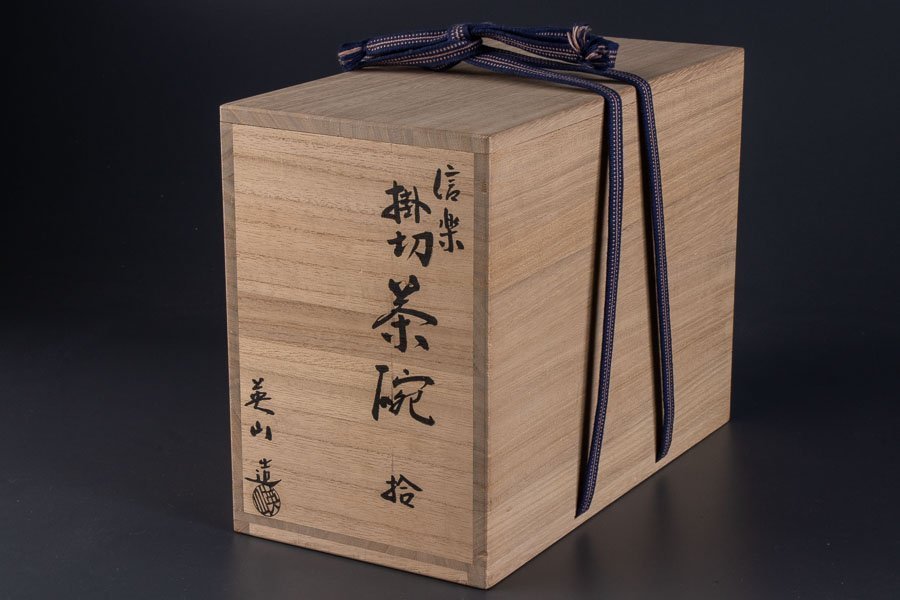 信楽
掛切茶碗 拾
英山造